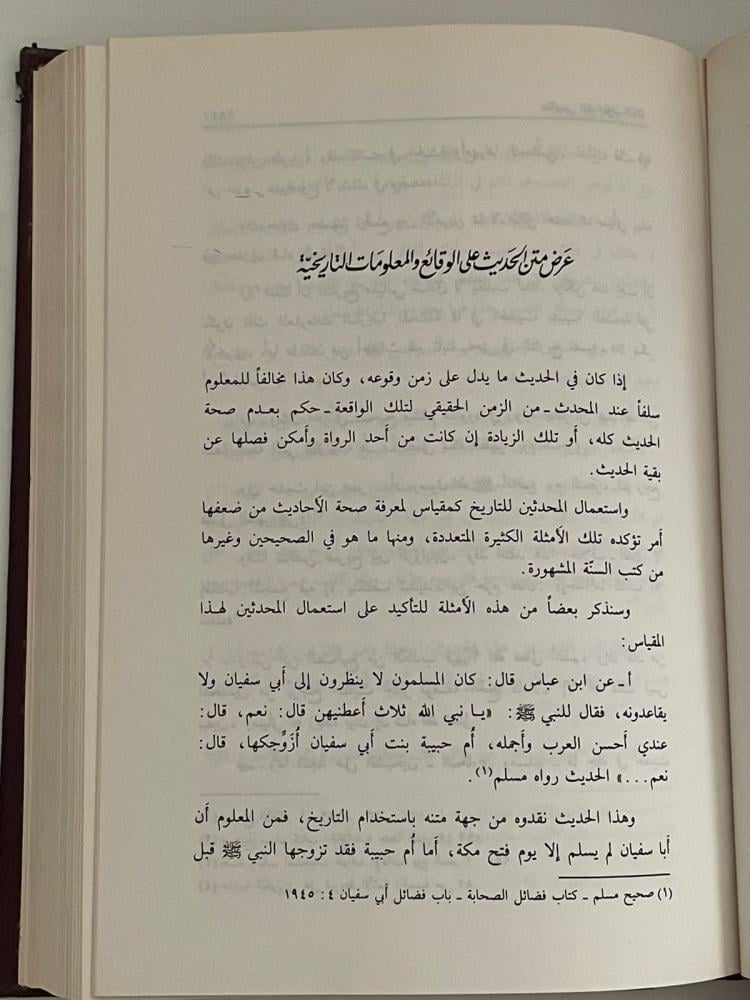 عَرض متن الحَديث على الوقائع والمعلومَات التاريخيّة
إذا كان في الحديث ما يدل على زمن وقوعه، وكان هذا مخالفاً للمعلوم
سلفاً عند المحدث ـ من الزمن الحقيقي لتلك الواقعة ـ حكم بعدم صحة
الحديث كله، أو تلك الزيادة إن كانت من أحد الرواة وأمكن فصلها عن
بقية الحديث.
واستعمال المحدثين للتاريخ كمقياس لمعرفة صحة الأحاديث من ضعفها
أمر تؤكده تلك الأمثلة الكثيرة المتعددة، ومنها ما هو في الصحيحين وغيرها
من كتب السنّة المشهورة.
وسنذكر بعضاً من هذه الأمثلة للتأكيد على استعمال المحدثين لهذا
المقياس:
أ ـ عن ابن عباس قال: كان المسلمون لا ينظرون إلى أبي سفيان ولا
يقاعدونه، فقال للنبي ﷺ: «يا نبي الله ثلاث أعطنيهن قال: نعم، قال:
عندي أحسن العرب وأجمله، أُم حبيبة بنت أبي سفيان أُزَوِّجكها، قال:
نعم...» الحديث رواه مسلم(١).
وهذا الحديث نقدوه من جهة متنه باستخدام التاريخ، فمن المعلوم أن
أبا سفيان لم يسلم إلا يوم فتح مكة، أما أُم حبيبة فقد تزوجها النبي ﷺ قبل
(١) صحيح مسلم ـ كتاب فضائل الصحابة ـ باب فضائل أبي سفيان ٤: ١٩٤٥